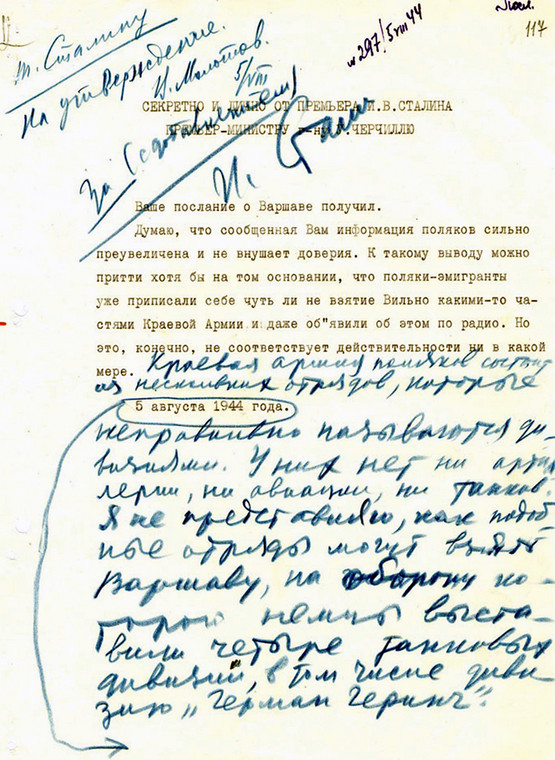 117
№ 297/5 VIII 44
т. Сталину
На утверждение.
В. Молотов.
5/VIII
СЕКРЕТНО И ЛИЧНО ОТ ПРЕМЬЕРА И.В.СТАЛИНА
ПРЕМЬЕР-МИНИСТРУ г-ну У.ЧЕРЧИЛЛЮ
За
И. Сталин
Ваше послание о Варшаве получил.
Думаю, что сообщенная Вам информация поляков сильно
преувеличена и не внушает доверия. К такому выводу можно
притти хотя бы на том основании, что поляки-эмигранты
уже приписали себе чуть ли не взятие Вильно какими-то ча-
стями Краевой Армии и даже об"явили об этом по радио. Но
это, конечно, не соответствует действительности ни в какой
мере. Краевая армия поляков состоит
из нескольких отрядов, которые
5 августа 1944 года.
неправильно называются ди-
визиями. У них нет ни артил-
лерии, ни авиации, ни танков.
Я не представляю, как подоб-
ные отряды могут взять
Варшаву, на оборону ко-
торой немцы выста-
вили четыре танковых
дивизии, в том числе диви-
зию „Герман Геринг".